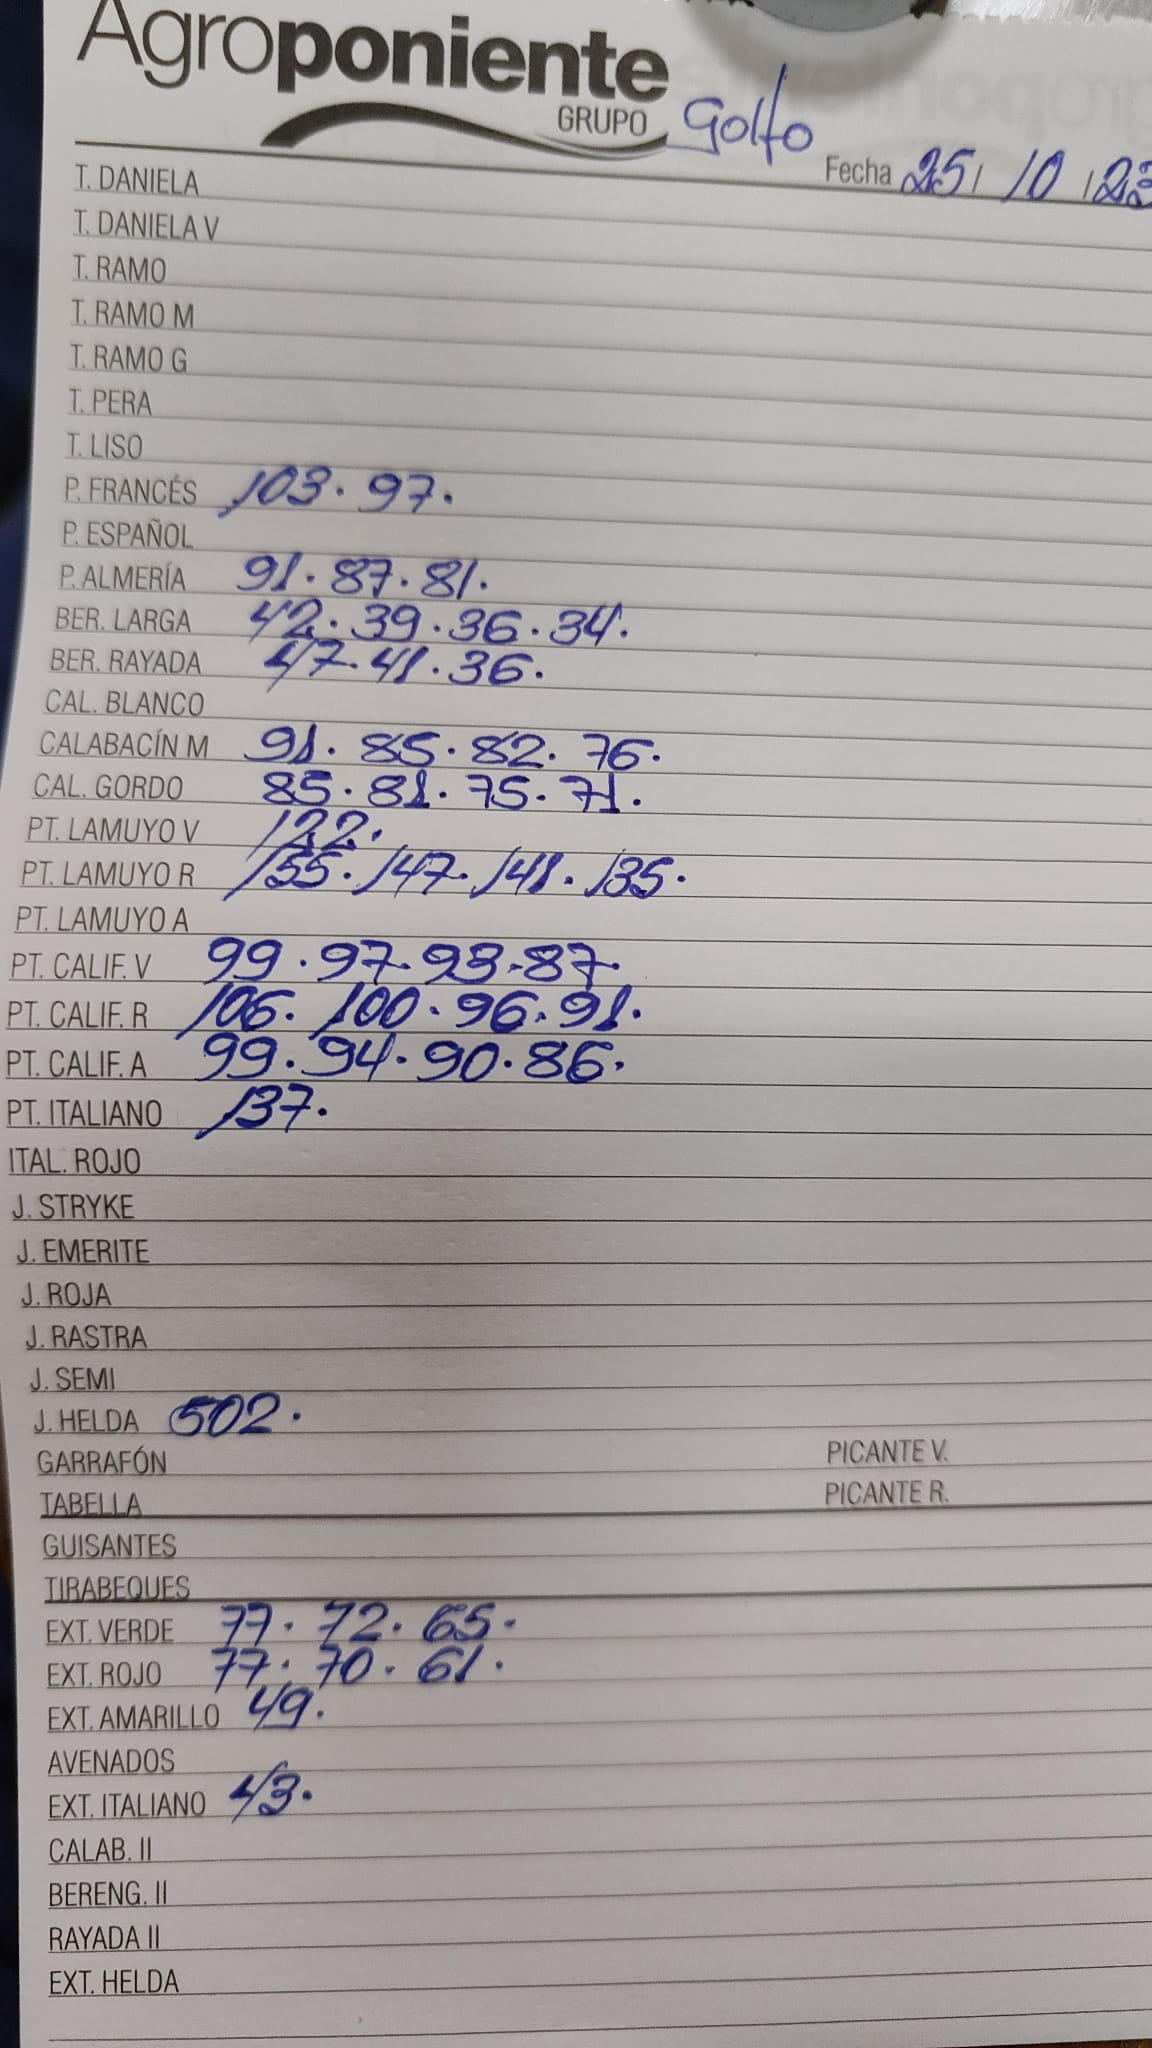 Agroponiente
GRUPO Golfo
Fecha 25/10/23
T. DANIELA
T. DANIELA V
T. RAMO
T. RAMO M
T. RAMO G
T. PERA
T. LISO
P. FRANCÉS 103. 97.
P. ESPAÑOL
P. ALMERÍA 91. 87. 81.
BER. LARGA 42. 39. 36. 34.
BER. RAYADA 47. 41. 36.
CAL. BLANCO
CALABACÍN M 91. 85. 82. 76.
CAL. GORDO 85. 81. 75. 71.
PT. LAMUYO V 122.
PT. LAMUYO R 155. 147. 141. 135.
PT. LAMUYO A
PT. CALIF. V 99. 97. 93. 87.
PT. CALIF. R 106. 100. 96. 91.
PT. CALIF. A 99. 94. 90. 86.
PT. ITALIANO 137.
ITAL. ROJO
J. STRYKE
J. EMERITE
J. ROJA
J. RASTRA
J. SEMI
J. HELDA 502.
GARRAFÓN PICANTE V.
TABELLA PICANTE R.
GUISANTES
TIRABEQUES
EXT. VERDE 77. 72. 65.
EXT. ROJO 77. 70. 61.
EXT. AMARILLO 49.
AVENADOS
EXT. ITALIANO 43.
CALAB. II
BERENG. II
RAYADA II
EXT. HELDA